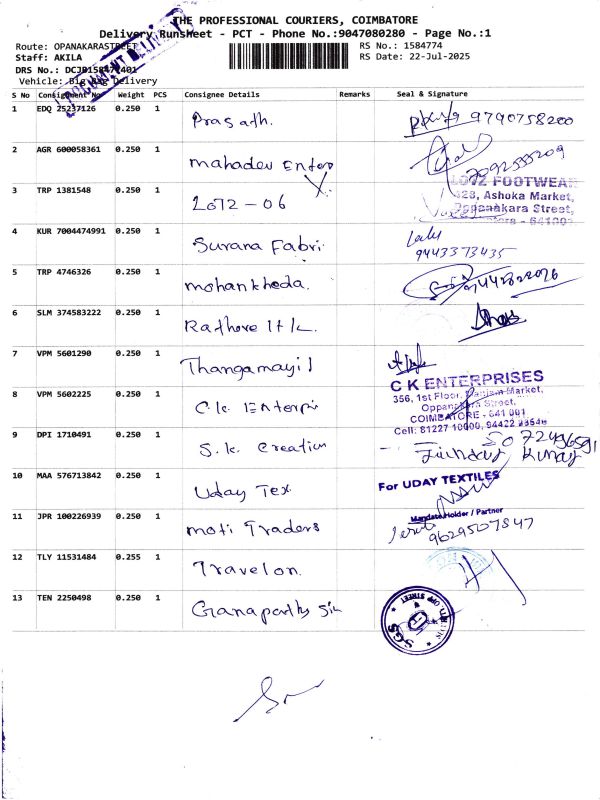 THE PROFESSIONAL COURIERS, COIMBATORE
Delivery Runsheet - PCT - Phone No.:9047080280 - Page No.:1
Route: OPANAKARASTREET
RS No.: 1584774
Staff: AKILA
RS Date: 22-Jul-2025
DRS No.:
DOCUMENT DELIVERY
Vehicle: Big Bag Delivery
S No Consignment No Weight PCS Consignee Details Remarks Seal & Signature
1 EDQ 25237126 0.250 1 Prasath. 9790758200
2 AGR 600058361 0.250 1 mahadev Enterp 7092555209
3 TRP 1381548 0.250 1 LOT2 - 06
FOOTWEAR
328, Ashoka Market,
Oppanakara Street,
4 KUR 7004474991 0.250 1 Surana Fabri 9443373435
5 TRP 4746326 0.250 1 mohankheda.
6 SLM 374583222 0.250 1 Rathore
7 VPM 5601290 0.250 1 Thangamayil
8 VPM 5602225 0.250 1 C.k. Enterpri
C K ENTERPRISES
356, 1st Floor, Ranjam Market,
Oppanakara Street,
COIMBATORE - 641 001
Cell: 81227 10000, 94422 23546
9 DPI 1710491 0.250 1 S.k. creation
Kumar
10 MAA 576713842 0.250 1 Uday Tex
For UDAY TEXTILES
Mandate Holder / Partner
11 JPR 100226939 0.250 1 moti Traders 9629507847
12 TLY 11531484 0.255 1 Travelon.
13 TEN 2250498 0.250 1 Ganapathy Sil
SGS
OPP STREET